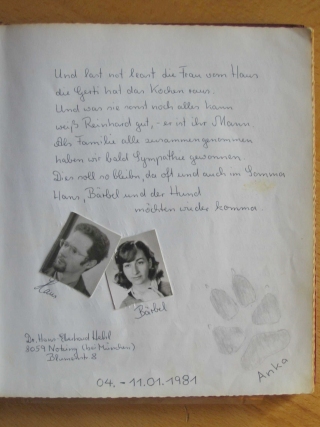 Und last not least die Frau vom Haus
die Gerti hat das Kochen raus.
Und was sie sonst noch alles kann
weiß Reinhard gut, - er ist ihr Mann
Als Familie alle zusammengenommen
haben wir bald Sympathie gewonnen.
Dies soll so bleiben, da oft und auch im Somma
Hans, Bärbel und der Hund
möchten wieder komma.
Hans
Bärbel
Dr. Hans-Eberhard
8059 (bei München)
8
Anka
04. - 11.01.1981